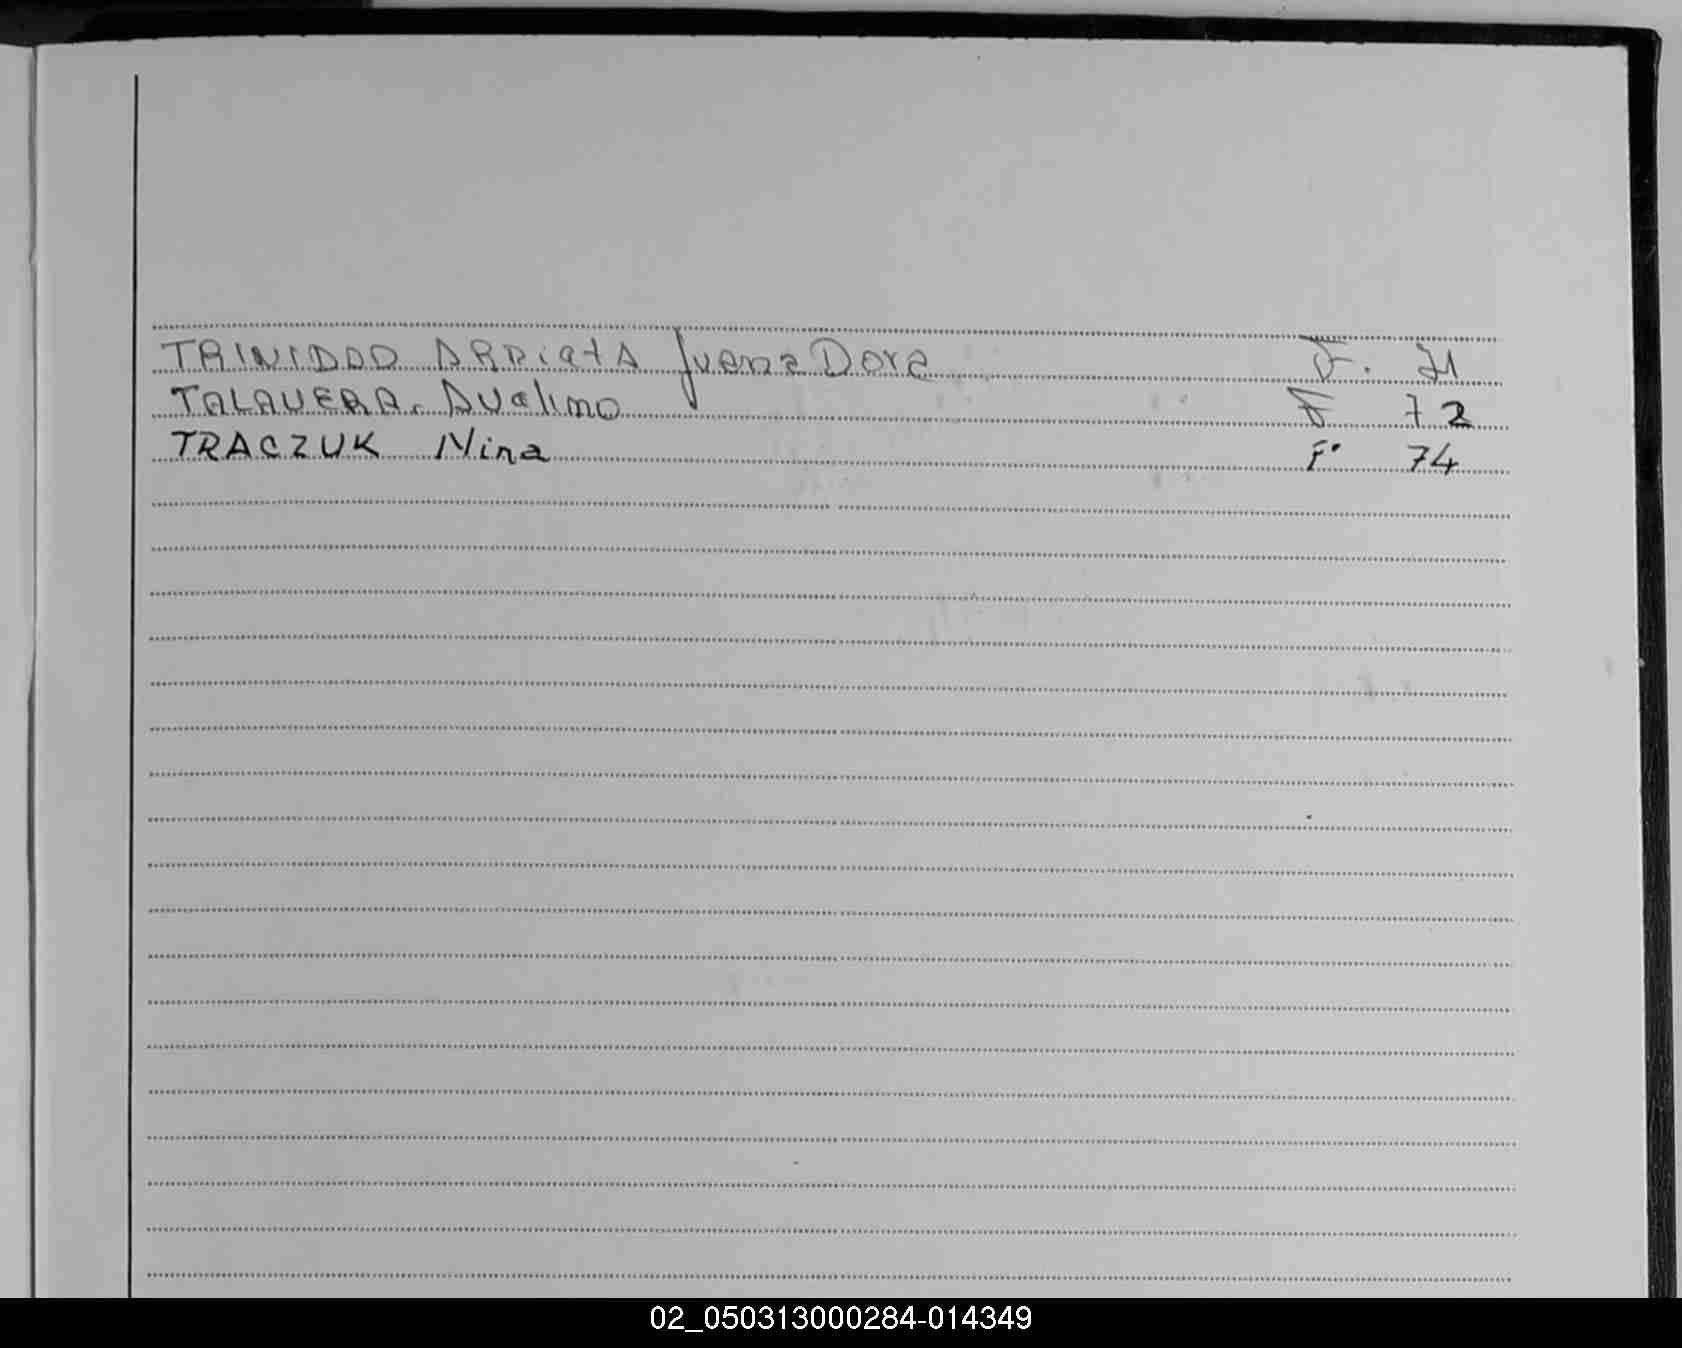 TRINIDAD ARRIETA Juana Dora F. 71
TALAVERA. Avelino F 72
TRACZUK Nina Fº 74
02_050313000284-014349